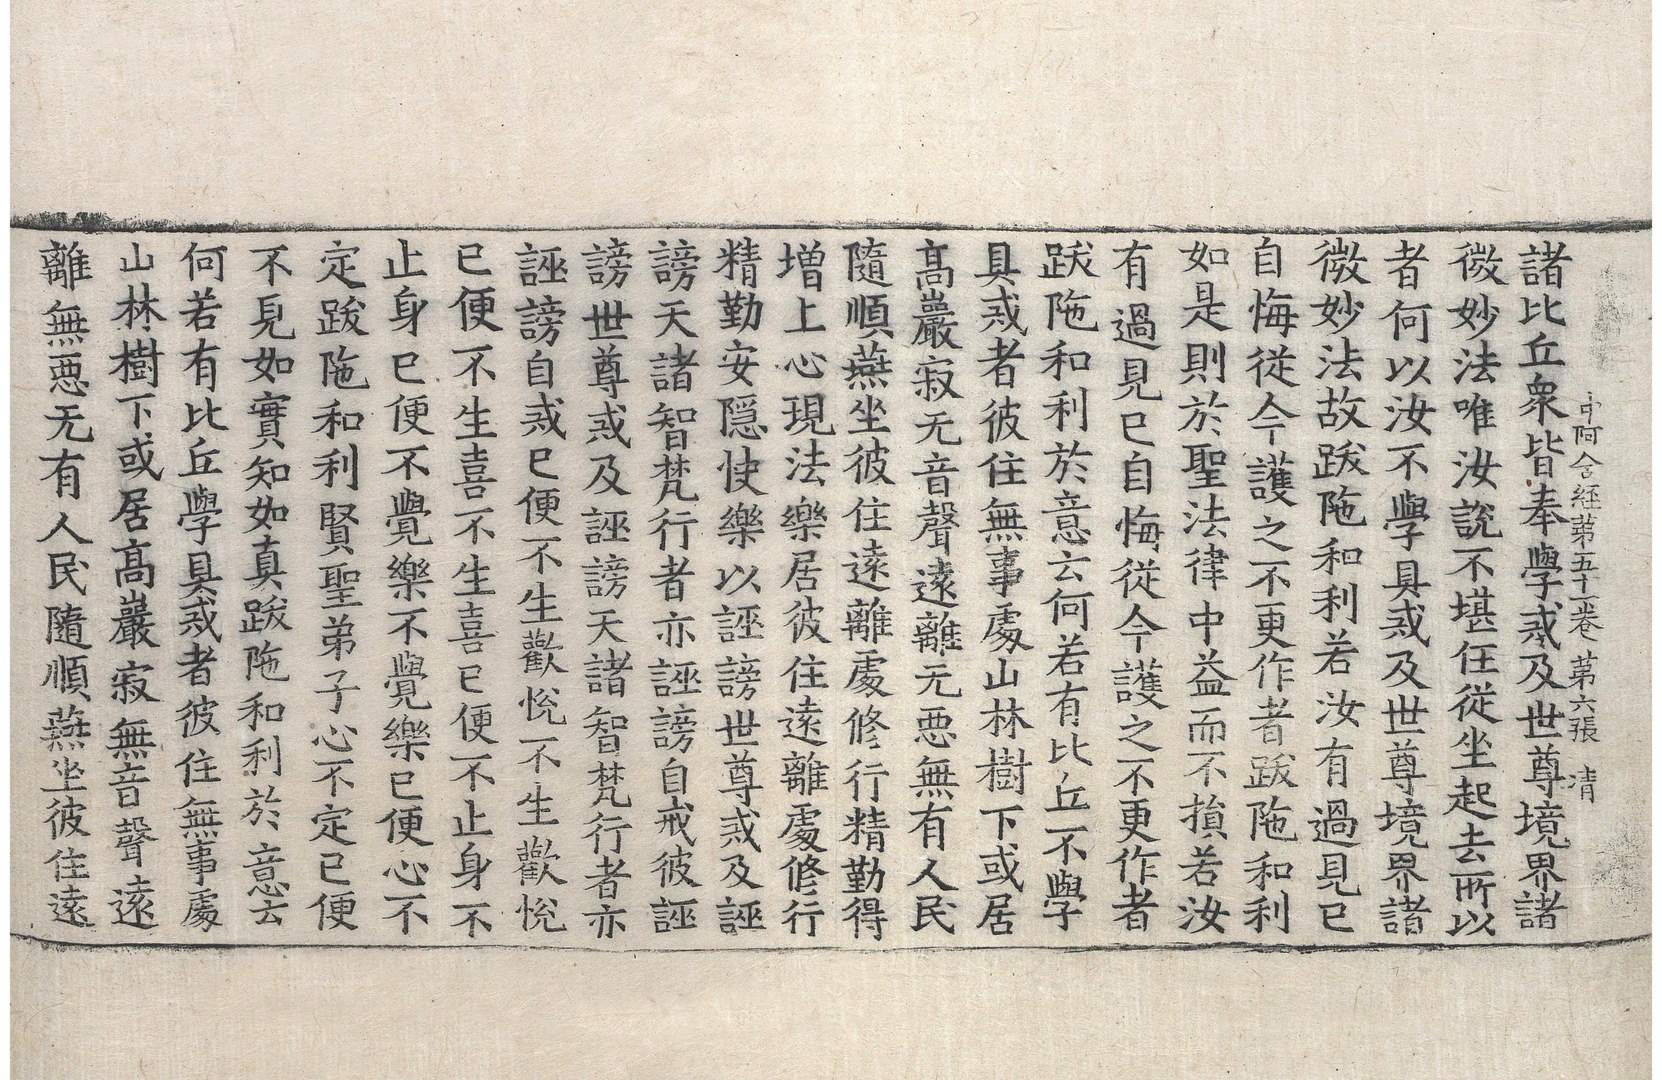 中阿含經第五十一卷 第六張 清
諸比丘衆皆奉學戒及世尊境界諸
微妙法唯汝說不堪任從坐起去所以
者何以汝不學具戒及世尊境界諸
微妙法故跋陁和利若汝有過見已
自悔從今護之不更作者跋陁和利
如是則於聖法律中益而不損若汝
有過見已自悔從今護之不更作者
跋陁和利於意云何若有比丘不學
具戒者彼住無事處山林樹下或居
髙巖寂无音聲遠離无惡無有人民
隨順燕坐彼住遠離處修行精勤得
增上心現法樂居彼住遠離處修行
精勤安隱快樂以誣謗世尊戒及誣
謗天諸智梵行者亦誣謗自戒彼誣
謗世尊戒及誣謗天諸智梵行者亦
誣謗自戒已便不生歡悅不生歡悅
已便不生喜不生喜已便不止身不
止身已便不覺樂不覺樂已便心不
定跋陁和利賢聖弟子心不定已便
不見如實知如真跋陁和利於意云
何若有比丘學具戒者彼住無事處
山林樹下或居髙巖寂無音聲遠
離無惡无有人民隨順燕坐彼住遠